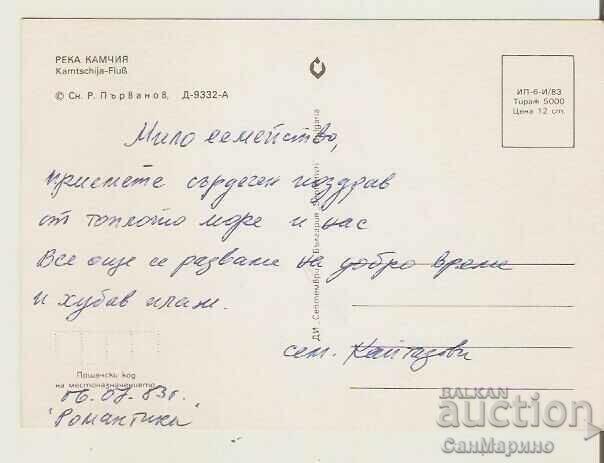 РЕКА КАМЧИЯ
Kamtschija-Fluß
© Сн. Р. Първанов, Д-9332-А
ИП-6-И/83
Тираж 5000
Цена 12 ст.
Мило семейство,
приемете сърдечен поздрав
от топлото море и нас
Все още се радваме на добро време
и хубав плаж.
сем. Кайтазови
ДИ „Септември“ България
Пощенски код
на местоназначението
06.07.83г.
"Романтика"
BALKAN
auction
СанМарино